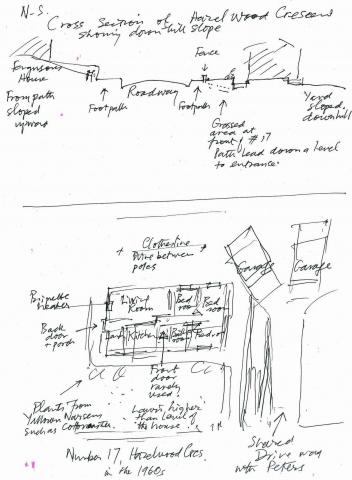 N.-S.
Cross Section of Hazelwood Crescent
showing downhill slope
Fergusons
House
Front path
sloped
upward
Footpath
Roadway
Footpath
Fence
Grassed
area at
front of #17
Path lead down a level
to entrance.
Yard
sloped
downhill
Clothesline
Wire between
poles
Garage
Garage
Briquette
heater
Living
Room
Bed
room
Bed
room
Back
door
+ porch
Kitchen
Bath
room
Bedroom
Front
door
rarely
used
Plants from
Nursery
such as Cotoneaster
Lawn, higher
than level of
the house
Shared
Drive way
with Peters
Number 17, Hazelwood Cres
in the 1960s